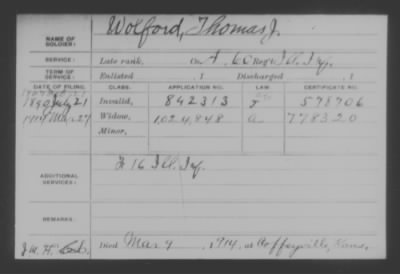 NAME OF SOLDIER: Wolford, Thomas J.
SERVICE: Late rank, Co. A, 60 Reg't Ill. Inf.
TERM OF SERVICE: Enlisted , 1 Discharged , 1
DATE OF FILING. CLASS. APPLICATION NO. LAW CERTIFICATE NO.
1890 July 21 Invalid, 842313 J 578706
1914 Mar. 27 Widow, 1024848 a 778320
Minor,
ADDITIONAL SERVICES: F 16 Ill. Inf.
REMARKS:
Died Mar 9, 1914, at Coffeyville, Kans.